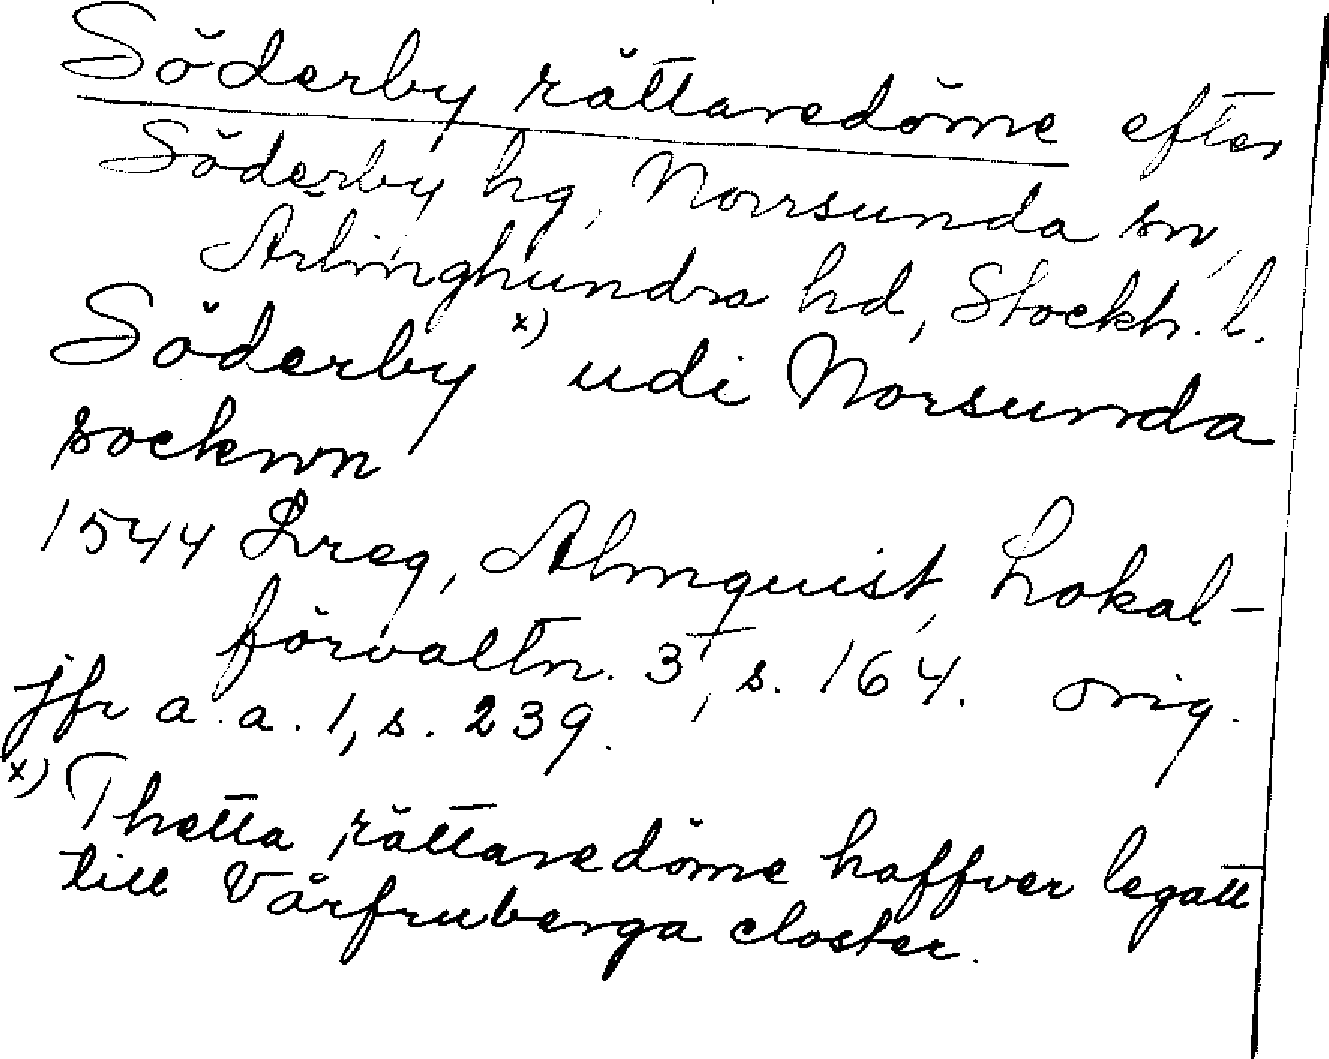 Söderby rättaredöme efter
Söderby hg, Norrsunda sn,
Ärlinghundra hd, Stockh. l.
Söderby x) udi Norsunda
socknn
1544 Lreg, Almquist, Lokal-
förvaltn. 3, s. 164. orig.
jfr a.a. 1, s. 239.
x) Thetta rättaredöme haffver legatt
till Vårfruberga closter.